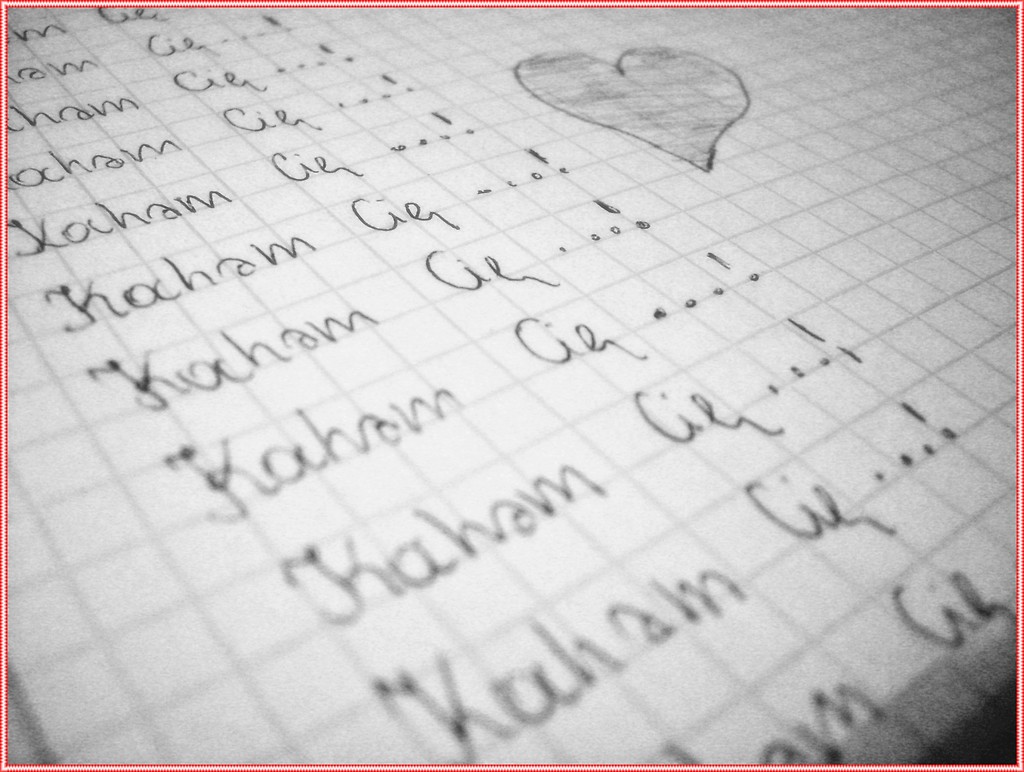 m Cię
ham Cię ...!
cham Cię ...!
ocham Cię ...!
Kocham Cię ...!
Kocham Cię ...!
Kocham Cię ...!
Kocham Cię ...!
Kocham Cię ...!
Kocham Cię ...!
ham Cię